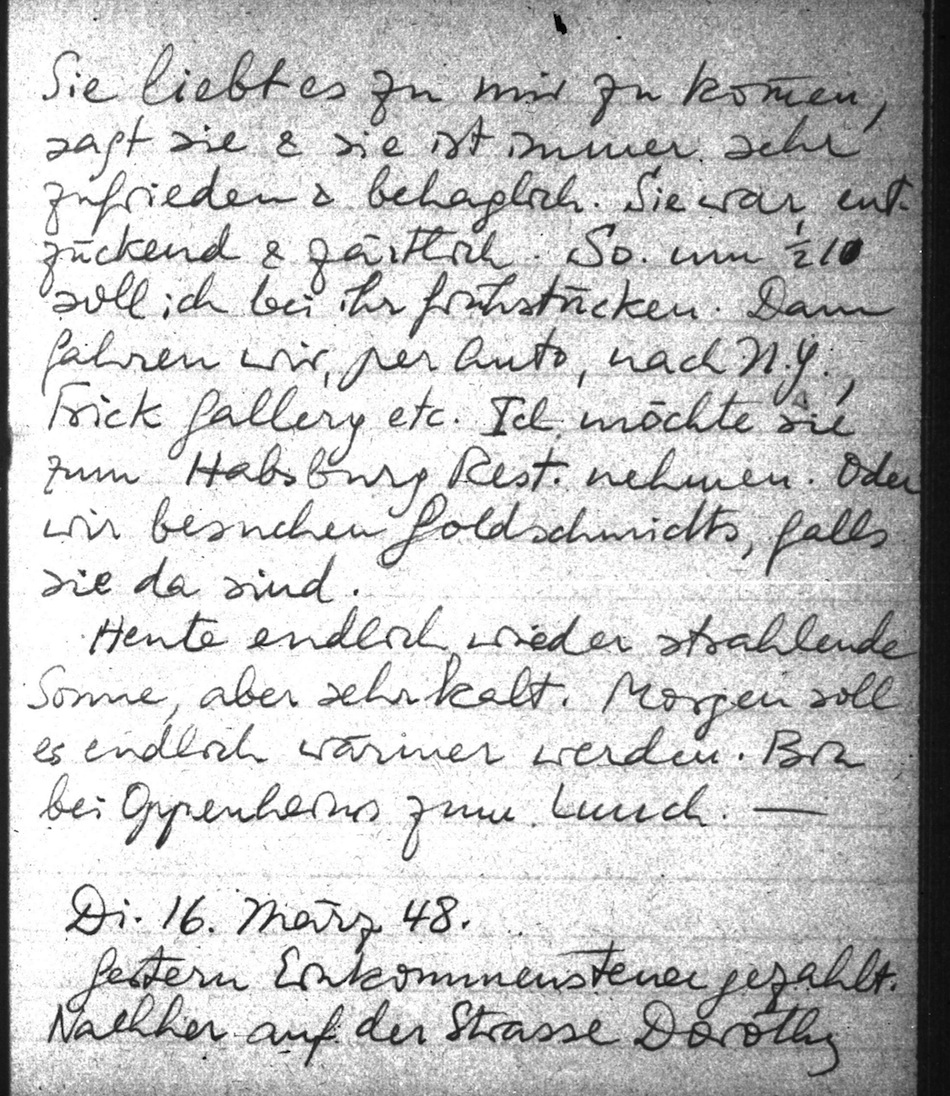 Sie liebt es zu mir zu kom̄en,
sagt sie & sie ist immer sehr
zufrieden & behaglich. Sie war ent-
zückend & zärtlich. So. um ½10
soll ich bei ihr frühstücken. Dann
fahren wir, per Auto, nach N.Y.,
Frick Gallery etc. Ich möchte sie
zum Habsburg Rest. nehmen. Oder
wir besuchen Goldschmidts, falls
sie da sind.
Heute endlich wieder strahlende
Sonne, aber sehr kalt. Morgen soll
es endlich wärmer werden. Bin
bei Oppenheims zum Lunch. —
Di. 16. März 48.
Gestern Einkommensteuer gezahlt.
Nachher auf der Strasse Dorothy